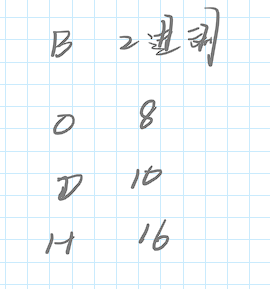 B 2进制
O 8
D 10
H 16